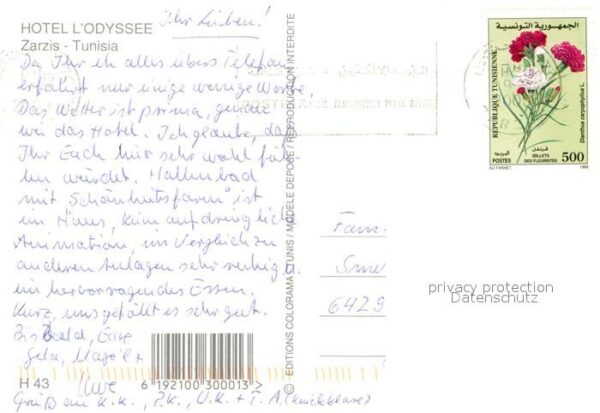 Ihr Lieben!
HOTEL L'ODYSSEE
Zarzis - Tunisia
Da Ihr eh alles übers Telefon
erfahrt nur einige wenige Worte.
Das Wetter ist prima, genau
wie das Hotel. Ich glaube, daß
Ihr Euch hier sehr wohl füh-
len würdet. Hallenbad
mit "Schönheitsfarm" ist
im Haus, keine aufdringliche
Animation, im Vergleich zu
anderen Anlagen sehr ruhig u.
ein hervorragendes Essen.
Kurz, uns gefällt es sehr gut.
Bis Bald, Eure
Gela, +
Uwe
H 43
6 192100 300013 >
Grüße an K.K., P.K., U.K. + T.A.
© EDITIONS COLORAMA TUNIS / MODELE DEPOSE / REPRODUCTION INTERDITE
الجمهورية التونسية
REPUBLIQUE TUNISIENNE
Dianthus caryophyllus L.
قرنفل
البريد
POSTES
ŒILLETS
DES FLEURISTES
500
Fam.
6429
privacy protection
Datenschutz